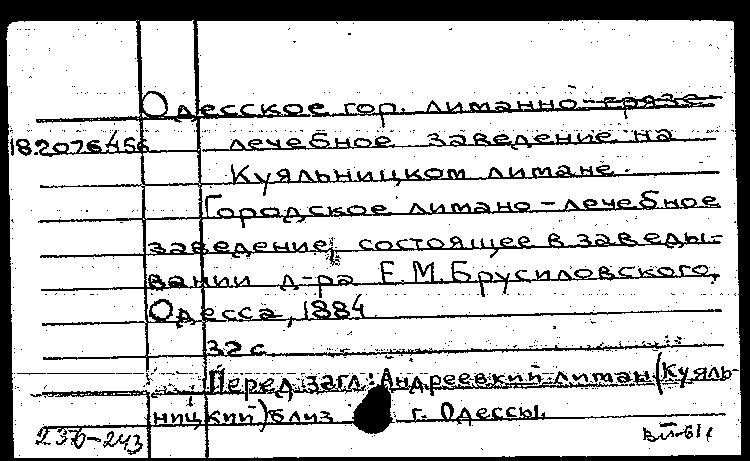 Одесское гор. лиманно-грязе-
182076456 лечебное заведение на
Куяльницком лимане.
Городское лимано-лечебное
заведение, состоящее в заведы-
вании д-ра Е.М. Брусиловского,
Одесса, 1884
32 с.
Перед загл: Андреевский лиман (Куяль-
ницкий) близ г. Одессы.
236-243